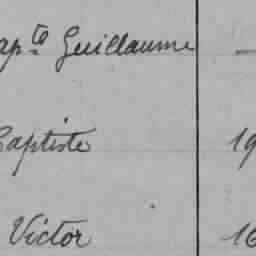 apte Guillaume —
Captiste 19
Victor 16